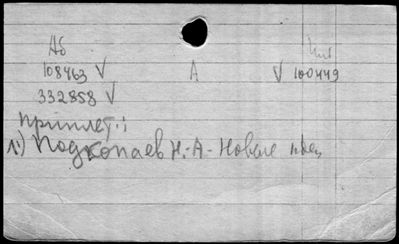 Аб Инв
108463 V А V 100449
332858 V
приплет.:
1.) Подкопаев Н.-А- Новые